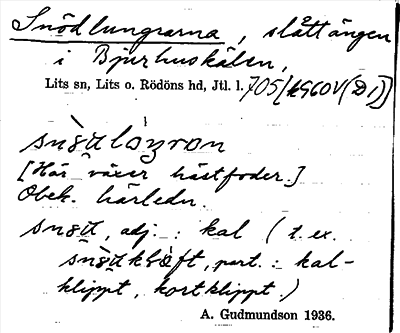 Snödlungrarna, slåttängen
i Bjurhuskälen,
Lits sn, Lits o. Rödöns hd, Jtl. l. 705 [k960V(D1)]
[Här växer hästfoder.]
Obek. härledn.
adj. : kal (t. ex.
part. : kal-
klippt, kortklippt.)
A. Gudmundson 1936.